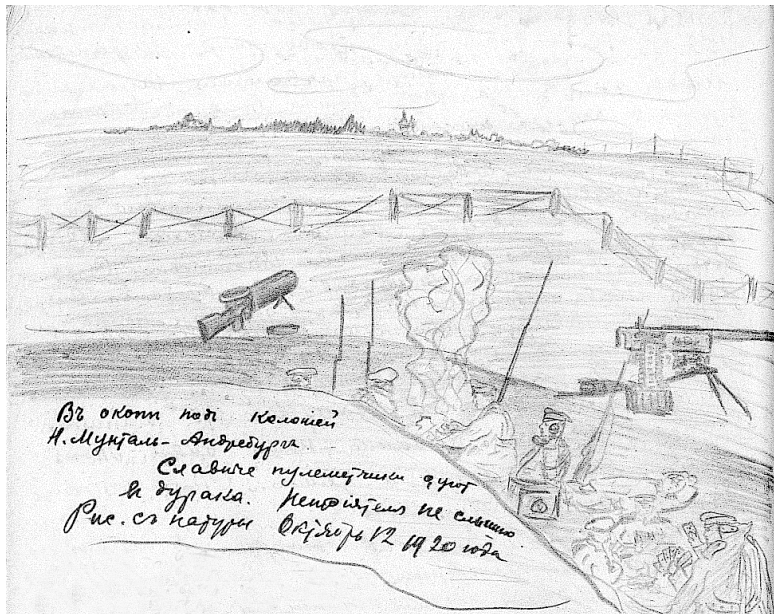 Въ окопѣ подъ колонiей
Н. Мунталь-Андребургъ.
Славные пулеметчики дуют
въ дурака. Непрiятеля не слышно.
Рис. съ натуры Октябрь 12 1920 года